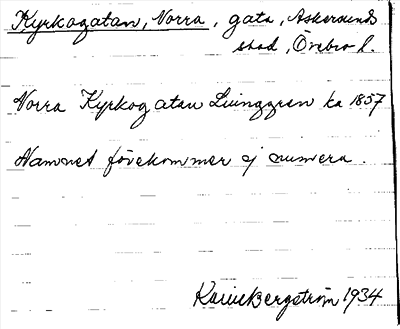 Kyrkogatan, Norra, gata, Askersunds
stad, Örebro l.
Norra Kyrkogatan Ljunggren ka 1857
Namnet förekommer ej numera.
Karin Bergström 1934